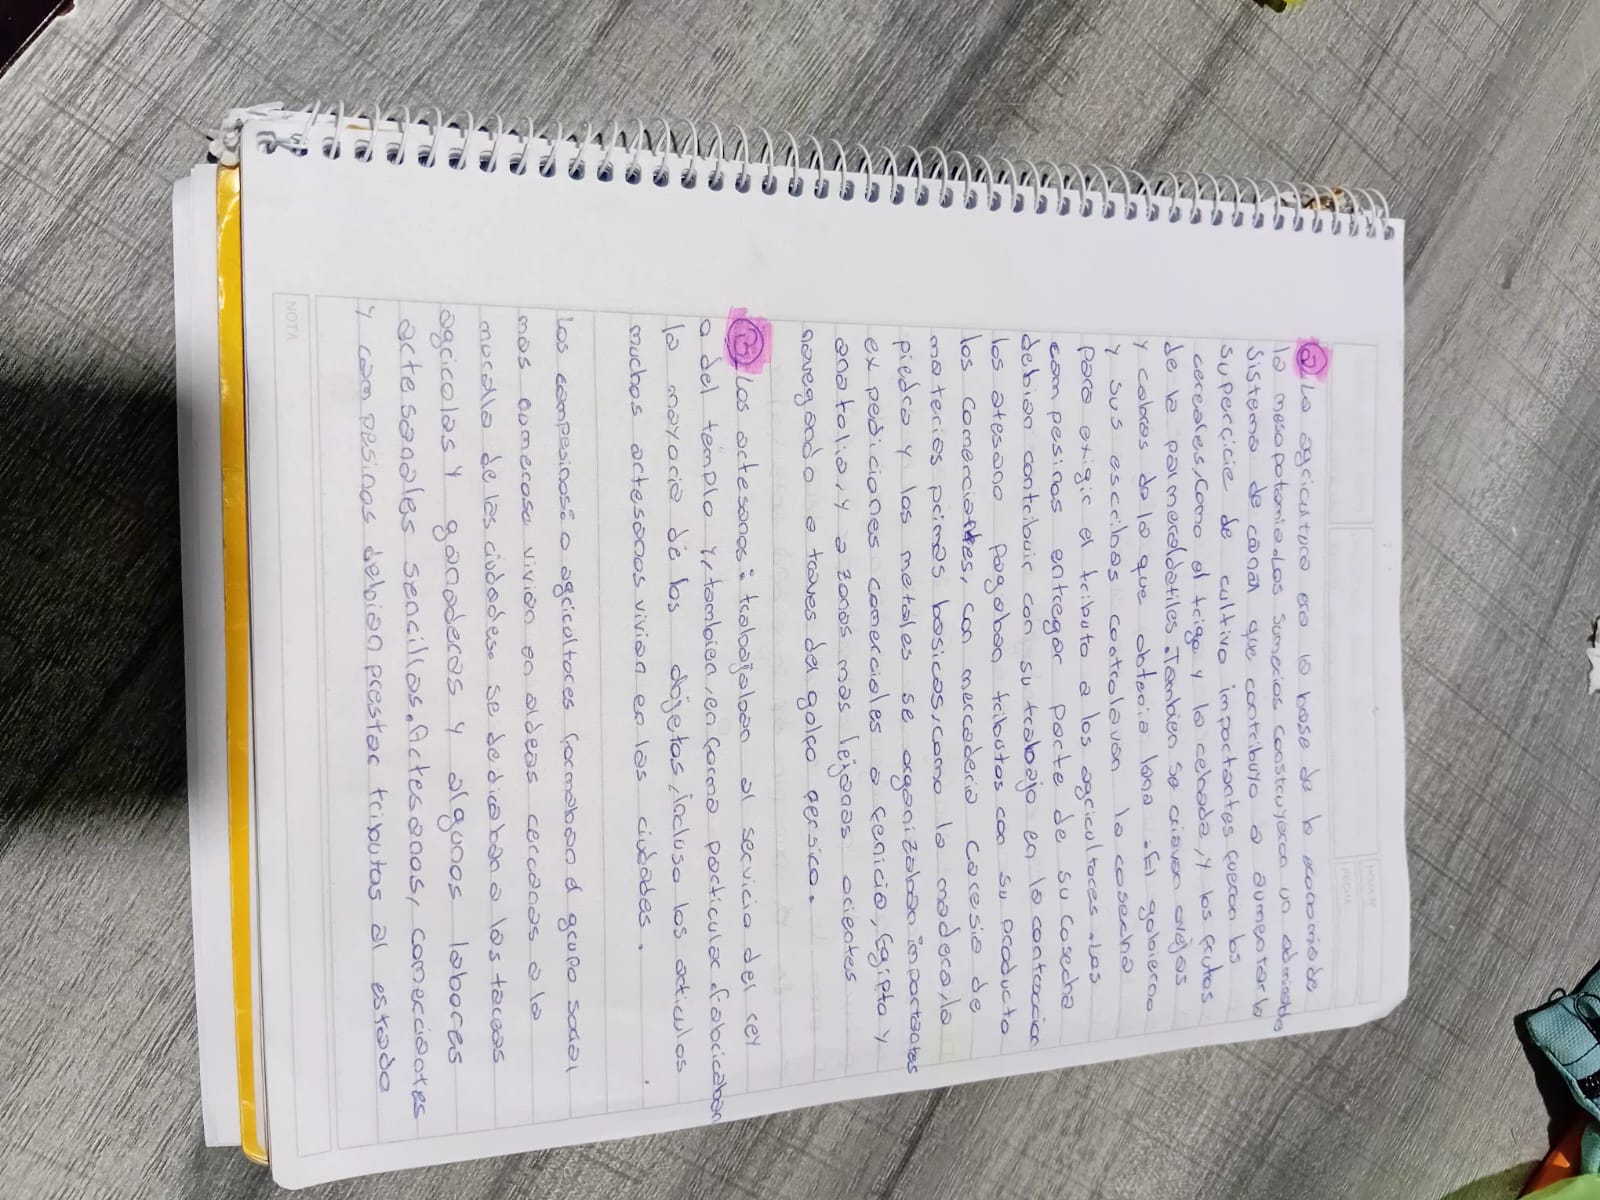 HOJA Nº
FECHA
② La agricultura era la base de la economia de
la mesopotamia. Los sumerios construyeron un
sistema de canal que contribuyo a aumentar la
superficie de cultivo importantes fueron los
cereales, como el trigo y la cebada, y los frutos
de la palmera datiles. Tambien se criavan ovejas
y cabras de la que obtenia lana. El gobierno
y sus escribas controlavan la cosecha
para exigir el tributo a los agricultores. Los
campesinos entregar parte de su cosecha
debian contribuir con su trabajo en la contruccion
los atesano pagaban tributos con su producto
los comerciantes, con mercaderia caresia de
materias primas basicas, como la madera, la
piedra y los metales se organizaban importantes
expediciones comerciales a fenicia, Egipto y
anatolia, y a zonas mas lejanas orientes
navegando a traves del golfo persico.
los artesanos: trabajaban al servicio del rey
o del templo y, tambien, en forma particular. fabricaban
la mayoria de los objetos, incluso los articulos
muchos artesanos vivian en las ciudades.
Los campesinos: o agricultores formaban el grupo social
mas numeroso vivian en aldeas cercanas a la
muralla de las ciudades. se dedicaban a las tareas
agricolas y ganaderas y algunos labores
artesanales sencillas. Artesanos, comerciantes
y campesinos debian prestar tributos al estado
NOTA